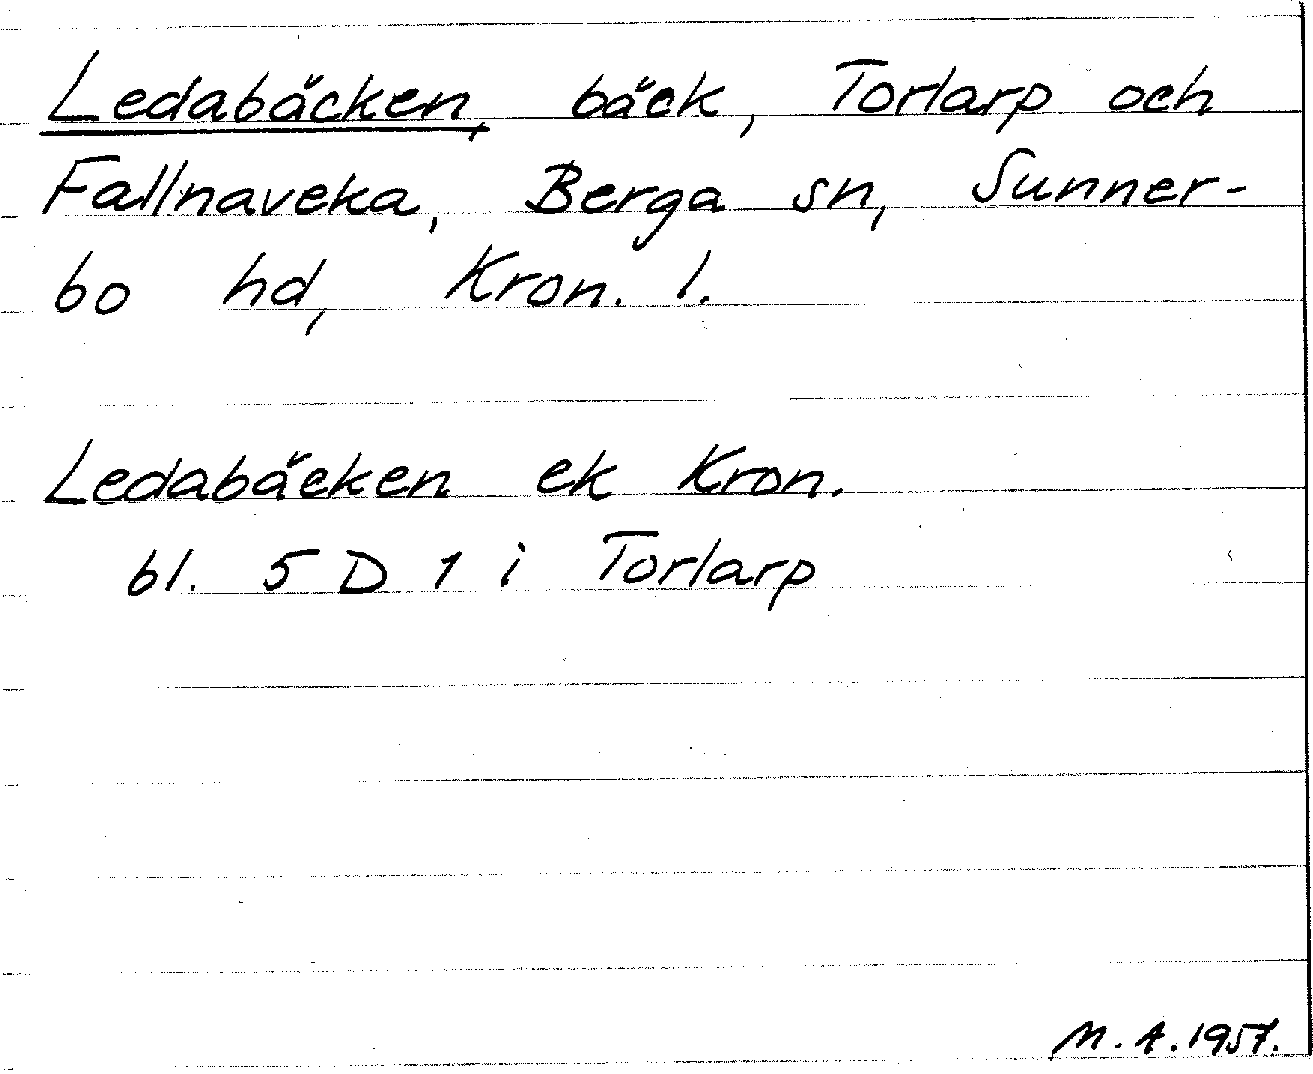 Ledabäcken, bäck, Torlarp och
Fallnaveka, Berga sn, Sunner-
bo hd, Kron. l.
Ledabäcken ek Kron.
bl. 5 D 1 i Torlarp
M. A. 1957.